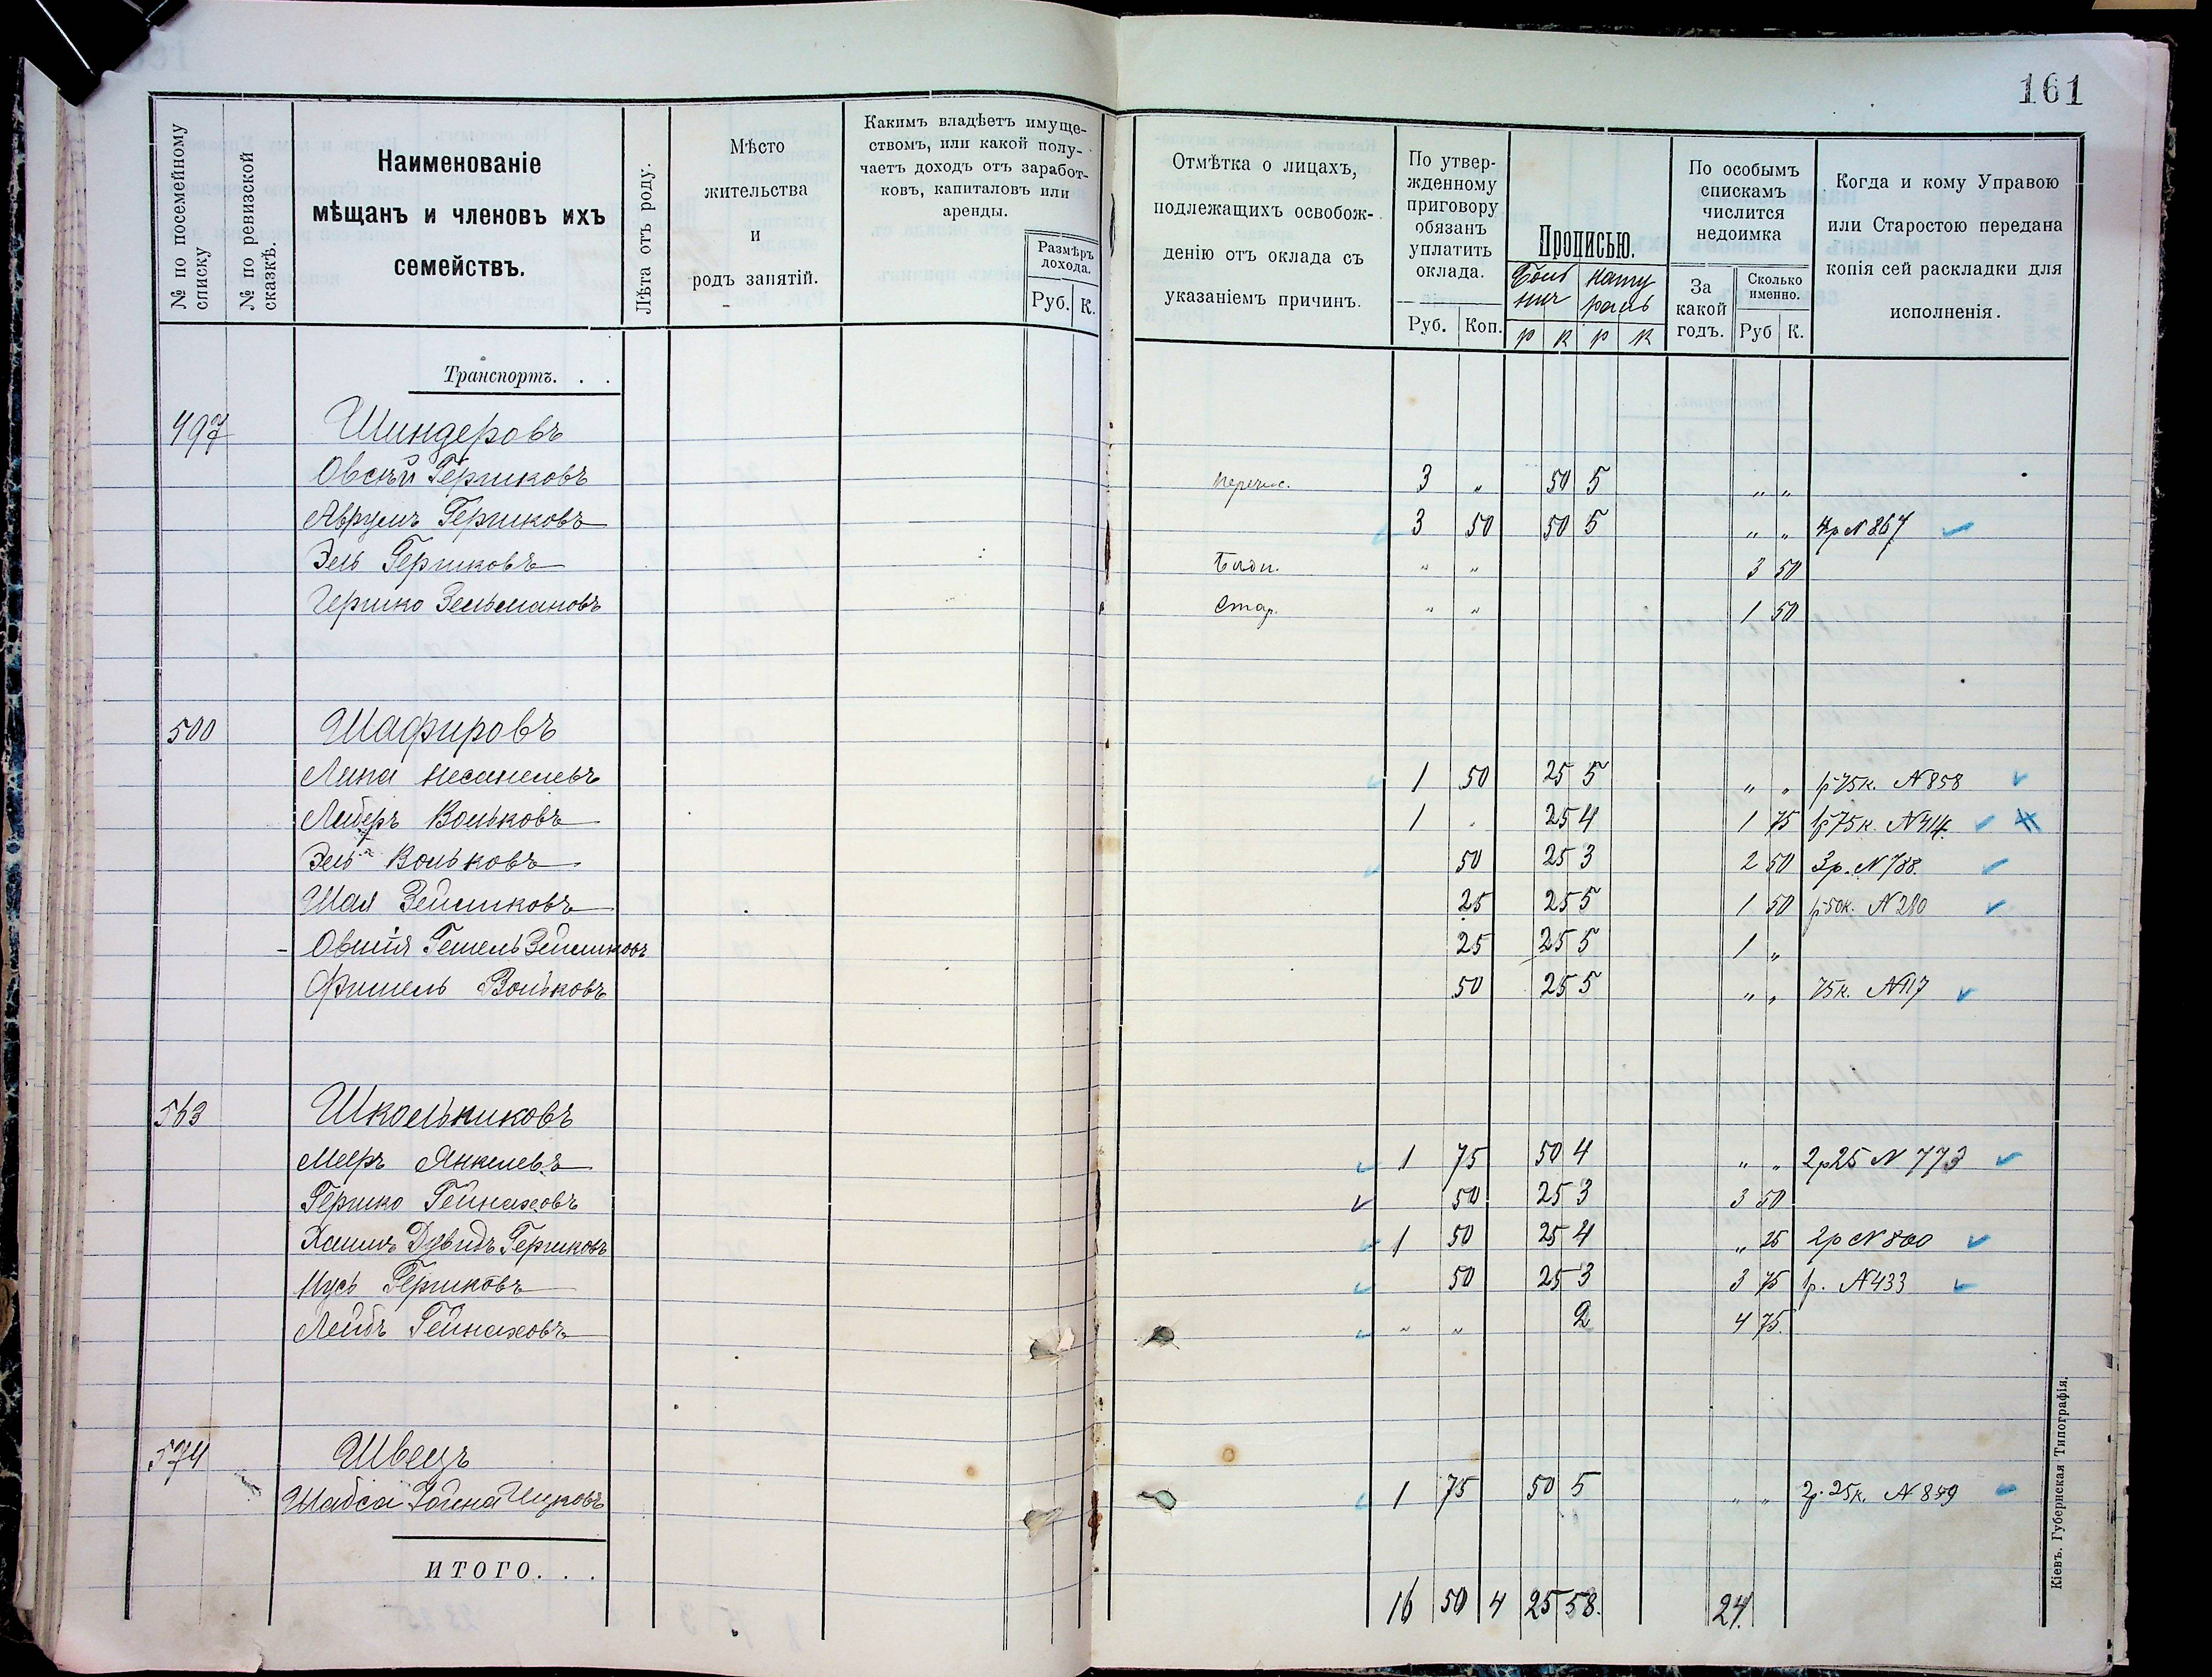 161
№ по посемейному списку
№ по ревизской сказкѣ.
Наименованіе
мѣщанъ и членовъ ихъ
семействъ.
Лѣта отъ роду.
Мѣсто
жительства
и
родъ занятій.
Какимъ владѣетъ имуще-
ствомъ, или какой полу-
чаетъ доходъ отъ заработ-
ковъ, капиталовъ или
аренды.
Размѣръ дохода.
Руб. К.
Отмѣтка о лицахъ,
подлежащихъ освобож-
денію отъ оклада съ
указаніемъ причинъ.
По утвер-
жденному
приговору
обязанъ
уплатить
оклада.
Руб. Коп.
Прописью.
р к р к
По особымъ
спискамъ
числится
недоимка
За какой годъ.
Сколько именно.
Руб К.
Когда и кому Управою
или Старостою передана
копія сей раскладки для
исполненія.
Транспортъ. . .
497 Шиндеровъ
Овсѣй Гершковъ 3 „ 50 5 „ „
Аврумъ Гершковъ 3 50 50 5 „ „ 4р № 867
Эль Гершковъ „ „ 3 50
Гершко Зельмановъ Стар. „ „ 1 50
500 Шафировъ
Липа 1 50 25 5 „ „ 1р 75к. № 858
Лейбръ Вольковъ 1 „ 25 4 1 75 1р 75к. № 414.
Эль Вольковъ 50 25 3 2 50 3р. № 788.
Шая Зейликовъ 25 25 5 1 50 р 50к. № 280
Овшія Гешель Зейликовъ 25 25 5 1 „
Фишель Вольковъ 50 25 5 „ „ 75к. № 117
563 Школьниковъ
Мееръ Янкелевъ 1 75 50 4 „ „ 2р 25 № 773
Гершко Гейнаховъ 50 25 3 3 50
Хаимъ Дувидъ Гершковъ 1 50 25 4 „ 25 2р № 800
Мусь Гершковъ 50 25 3 3 75 1р. № 433
Лейбъ Гейнаховъ „ „ 2 4 75.
574 Швецъ
Шабса Іойна Ицковъ 1 75 50 5 „ „ 2р. 25к. № 859
ИТОГО. . .
16 50 4 25 58. 24.
Кіевъ. Губернская Типографія.